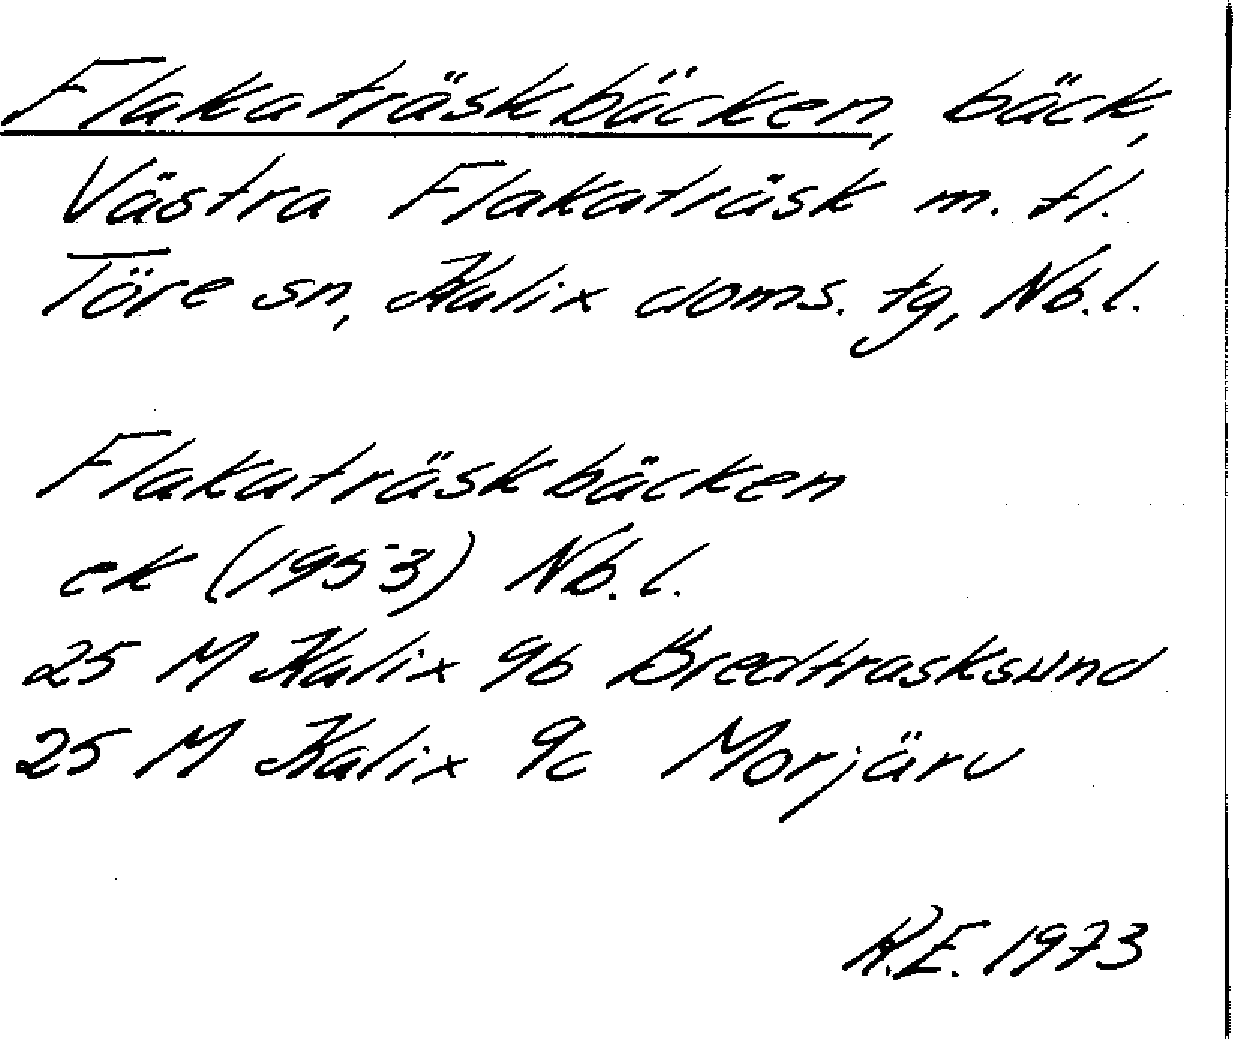 Flakaträskbäcken, bäck,
Västra Flakaträsk m. fl.
Töre sn, Kalix doms. tg, Nb.l.
Flakaträskbäcken
ek (1953) Nb.l.
25 M Kalix 9b Bredträsksund
25 M Kalix 9c Morjärv
K.E. 1973